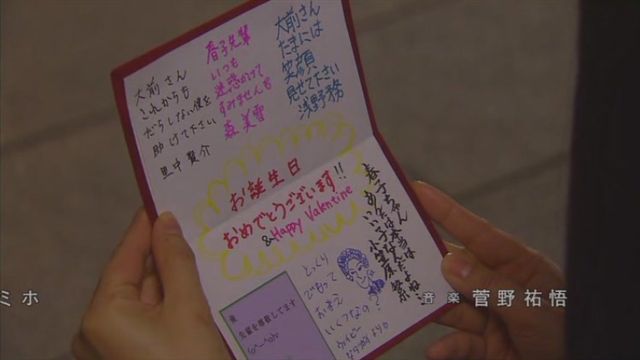 大前さん
たまには
笑顔
見せて下さい
浅野務
春子先輩
いつも
迷惑かけて
すみません
森 美雪
大前さん
これからも
だらしない僕を
助けて下さい
里中賢介
お誕生日
おめでとうございます!!
&Happy Valentine
春子ちゃん
あんたは本当は
いい子なんだよね…
小笠原
とっくり
でもって
おまえ
いくつなの?
先輩を尊敬してます
ミホ
音楽 菅野祐悟